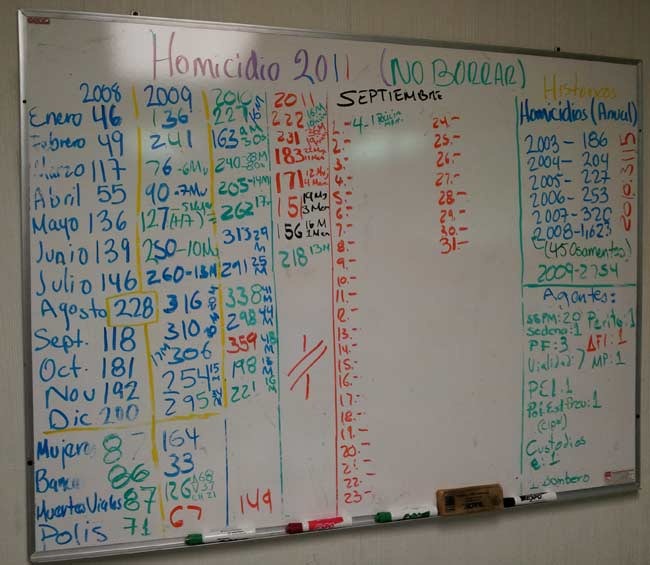 Homicidio 2011 (NO BORRAR)
2008 2009 2010 2011 SEPTIEMBRE
Enero 46 136 227 222
Febrero 49 241 163 231
Marzo 117 76-6Mu 240 183
Abril 55 90-7Mu 205-14M 171
Mayo 136 127 262 151
Junio 139 250-10M 313 156
Julio 146 260-13M 291 218 13M
Agosto 228 316 338
Sept. 118 310 298
Oct. 181 306 359
Nov 192 254 198
Dic 200 295 221
Mujeres 87 164
Banca 86 33
Muertes Viales 87 126
Polis 71 67 149
1.-
2.-
3.-
4.-
5.-
6.-
7.-
8.-
9.-
10.-
11.-
12.-
13.-
14.-
15.-
16.-
17.-
18.-
19.-
20.-
21.-
22.-
23-
24.-
25.-
26.-
27.-
28.-
29.-
30.-
31.-
Históricos
Homicidios (Anual)
2003 - 186
2004 - 204
2005 - 227
2006 - 253
2007 - 320
2008 - 1,623
(45 Osamentas)
2009-2754
2010.3115
Agentes:
SSPM: 20 Perito: 1
Sedena: 1 AFI: 1
PF: 3 MP: 1
Vialidad 7
PEI: 1
Custodios
1 bombero